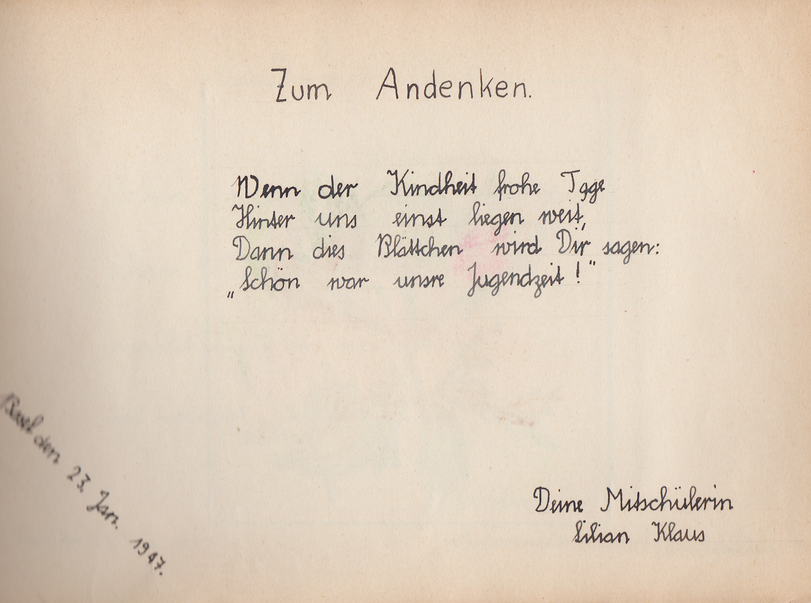 Zum Andenken.
Wenn der Kindheit frohe Tage
Hinter uns einst liegen weit,
Dann dies Blättchen wird Dir sagen:
„Schön war unsre Jugendzeit!"
Basel den 23. Jan. 1947.
Deine Mitschülerin
Lilian Klaus